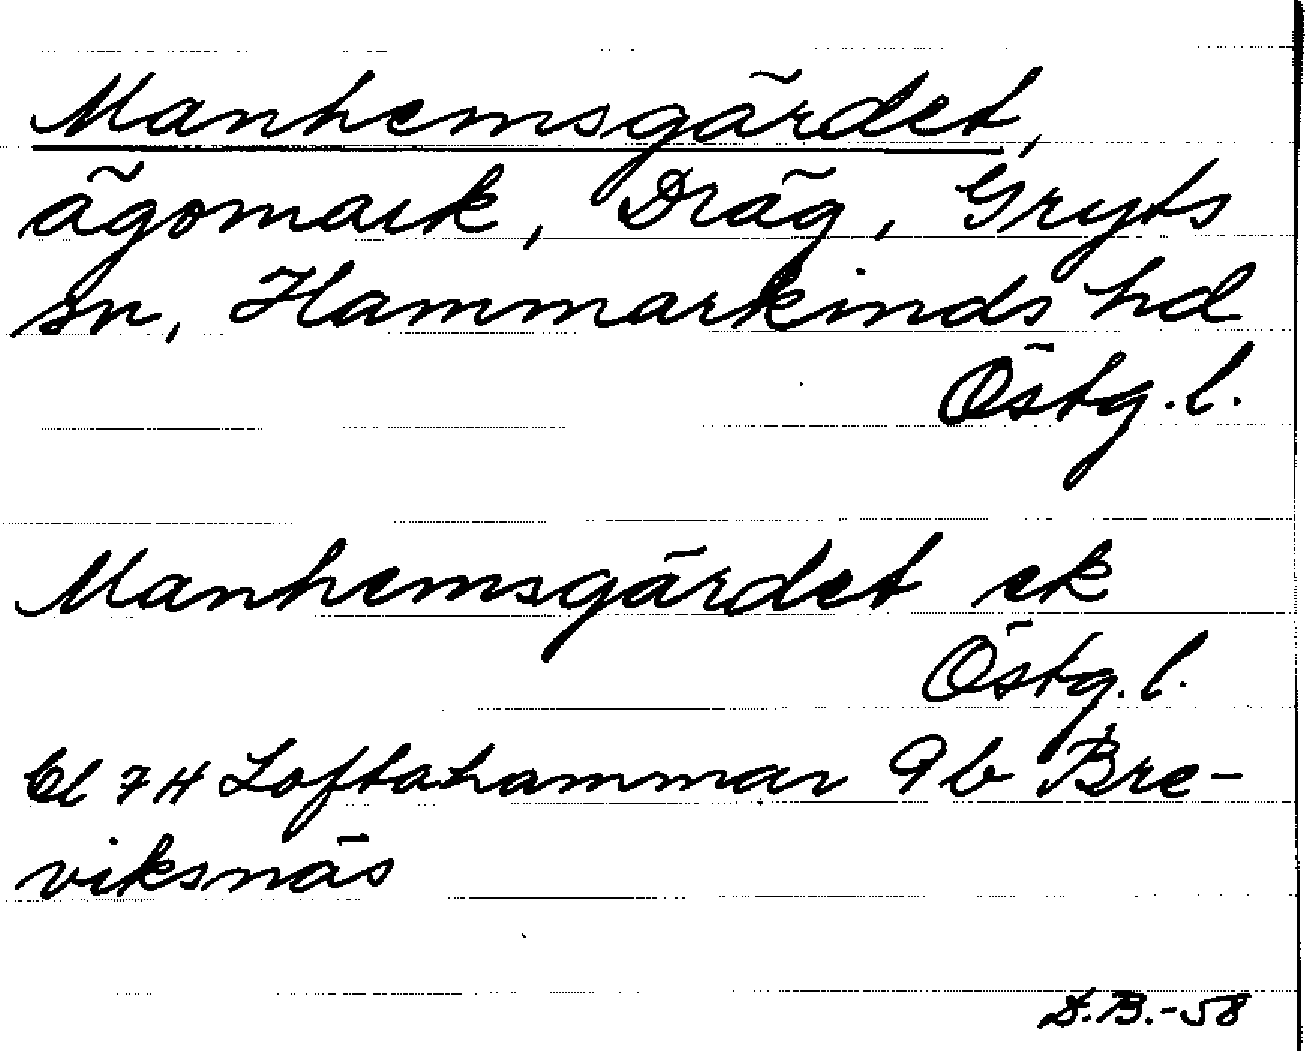 Manhemsgärdet,
ägomark, Dräg, Gryts
sn, Hammarkinds hd
Östg. l.
Manhemsgärdet ek
Östg. l.
Bl 7 H Loftahammar 9 b Bre-
viksnäs
D.B.-58